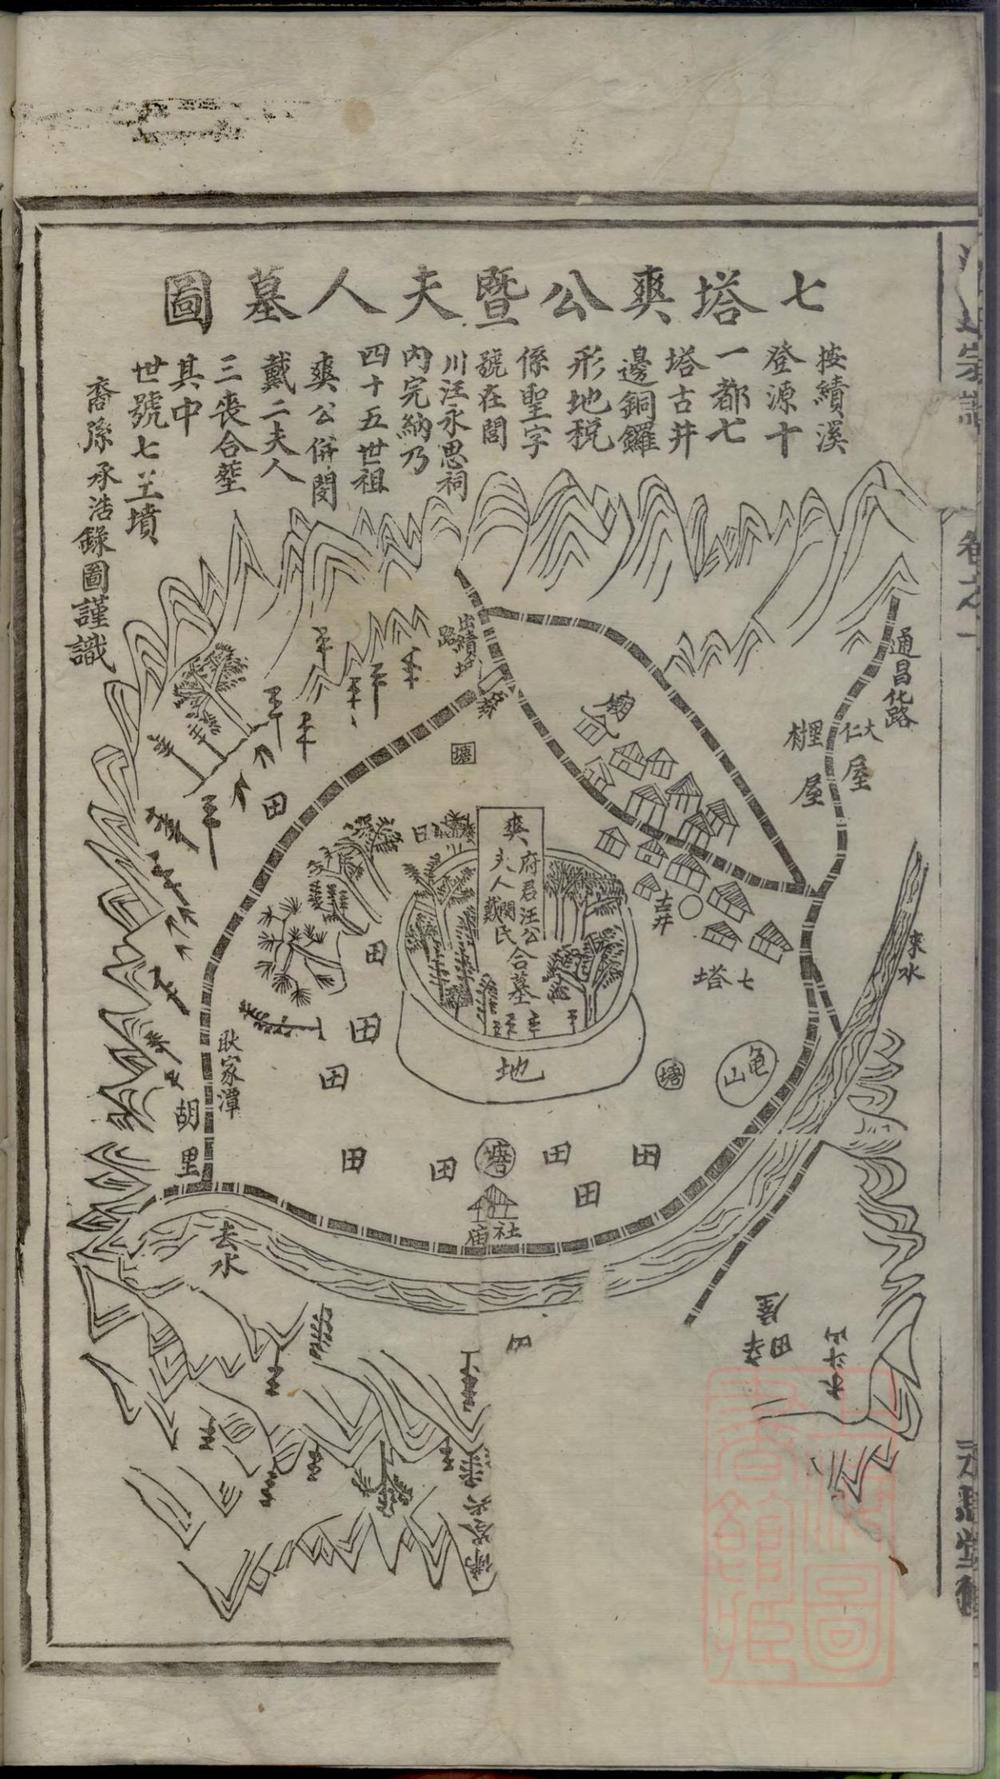 七塔爽公暨夫人墓圖
按績溪
登源十
一都七
塔古井
邊銅鑼
形地税
係聖字
號在閭
川汪永思祠
内完納乃
四十五世祖
爽公併閔
戴二夫人
三喪合塟
其中
世號七𡈼墳
裔孫承浩錄圖謹識
通昌化路
大仁
屋
里村
屋
塘
田
爽府君汪公
夫人閔氏
戴
合墓
地
古井
七塔
來水
龟山
塘
田
田
田
耿家潭
胡里
田
田
塘
田
田
田
社庙
去水
田
屋